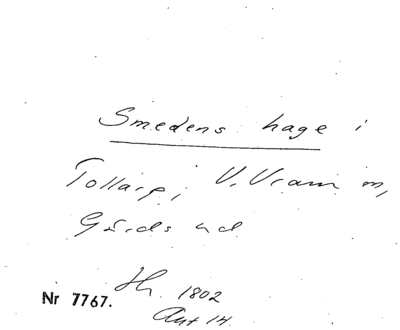 Smedens hage i
Tollarp, V. Vram m,
Gärds hd
Nr 7767.
1802
Akt 14